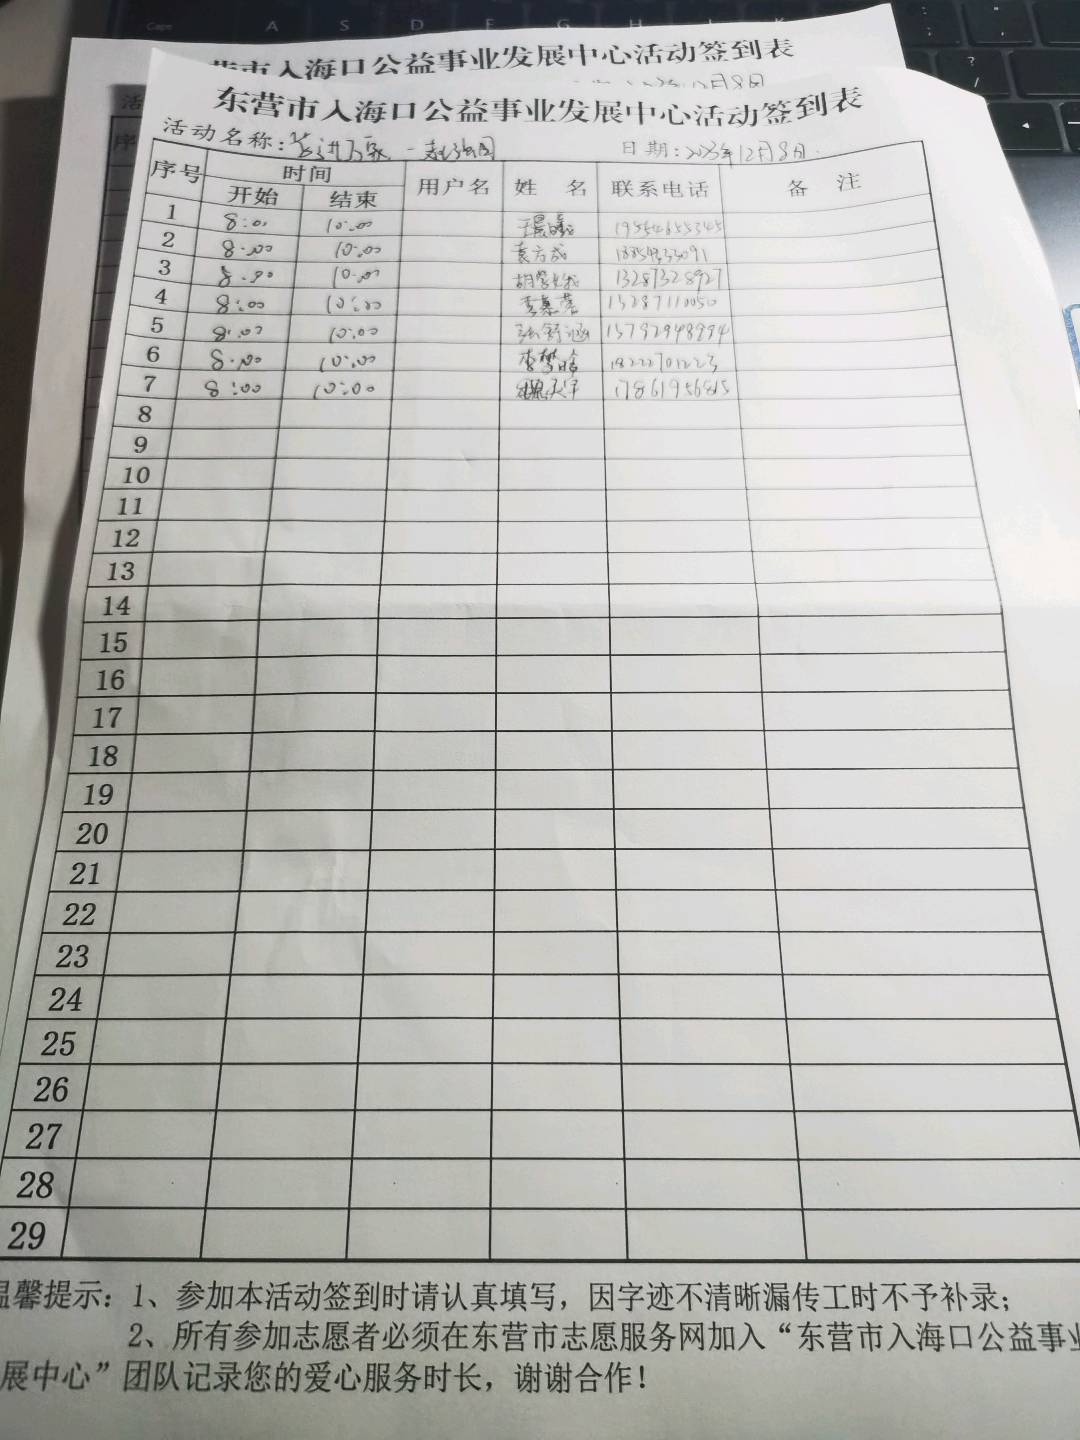 A S D F G H J K
公益事业发展中心活动签到表
东营市入海口公益事业发展中心活动签到表
活动名称: 进万家 日期: 2023年12月8日
序号 时间 用户名 姓 名 联系电话 备 注
开始 结束
1 8:00 10:00 19554655345
2 8:00 10:00 袁方成
3 8:00 10:00 13287328927
4 8:00 10:00 李慕蓉 15287110050
5 8:00 10:00 张舒涵
6 8:00 10:00 李梦晗
7 8:00 10:00 17861956815
8
9
10
11
12
13
14
15
16
17
18
19
20
21
22
23
24
25
26
27
28
29
温馨提示: 1、参加本活动签到时请认真填写，因字迹不清晰漏传工时不予补录；
2、所有参加志愿者必须在东营市志愿服务网加入“东营市入海口公益事业
展中心”团队记录您的爱心服务时长，谢谢合作！